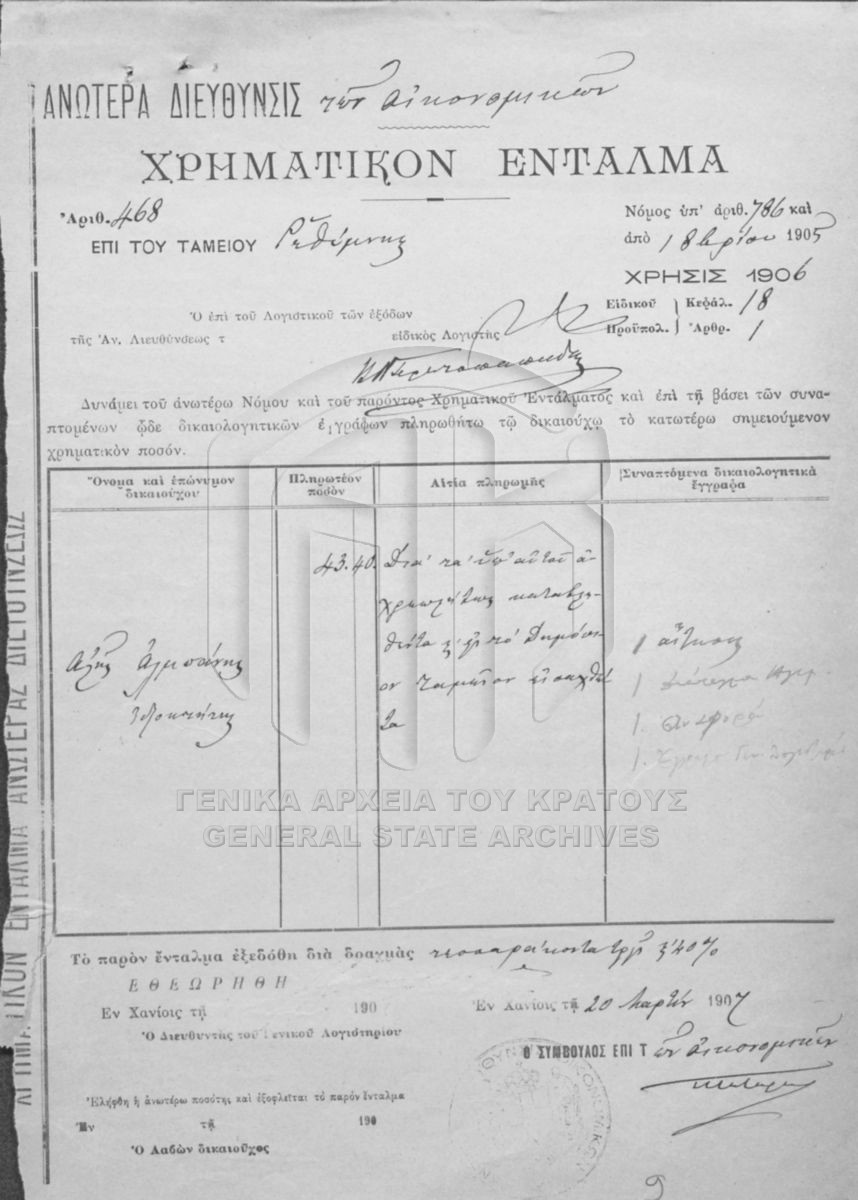 ΑΝΩΤΕΡΑ ΔΙΕΥΘΥΝΣΙΣ τῶν Οἰκονομικῶν
ΧΡΗΜΑΤΙΚΟΝ ΕΝΤΑΛΜΑ
Ἀριθ. 468
Νόμος ὑπ' ἀριθ. 786 καὶ
ΕΠΙ ΤΟΥ ΤΑΜΕΙΟΥ Ρεθύμνης
ἀπὸ 18βρίου 1905
ΧΡΗΣΙΣ 1906
Εἰδικοῦ Κεφάλ. 18
Προϋπολ. Ἀρθρ. 1
Ὁ ἐπὶ τοῦ Λογιστικοῦ τῶν ἐξόδων
τῆς Ἀν. Διευθύνσεως τ εἰδικὸς Λογιστὴς
Δυνάμει τοῦ ἀνωτέρω Νόμου καὶ τοῦ παρόντος Χρηματικοῦ Ἐντάλματος καὶ ἐπὶ τῇ βάσει τῶν συνα-
πτομένων ᾧδε δικαιολογητικῶν ἐγγράφων πληρωθήτω τῷ δικαιούχῳ τὸ κατωτέρω σημειούμενον
χρηματικὸν ποσόν.
Ὄνομα καὶ ἐπώνυμον
δικαιούχου
Πληρωτέον
ποσὸν
Αἰτία πληρωμῆς
Συναπτόμενα δικαιολογητικὰ
ἔγγραφα
43.40
Διὰ τὰ ὑπ' αὐτοῦ ἀ-
χρεωστήτως καταβλη-
θέντα εἰς τὸ Δημόσι-
ον Ταμεῖον εἰσαχθέν
τα
1 αἴτησις
1
1. Ἀναφορά
1. Ἔγγραφ
ΓΕΝΙΚΑ ΑΡΧΕΙΑ ΤΟΥ ΚΡΑΤΟΥΣ
GENERAL STATE ARCHIVES
Τὸ παρὸν ἔνταλμα ἐξεδόθη διὰ δραχμὰς τεσσαράκοντα τρεῖς 40%
ΕΘΕΩΡΗΘΗ
Ἐν Χανίοις τῇ 190
Ἐν Χανίοις τῇ 20 Μαρτίου 1907
Ὁ Διευθυντὴς τοῦ Γενικοῦ Λογιστηρίου
Ο ΣΥΜΒΟΥΛΟΣ ΕΠΙ Τ ῶν Οἰκονομικῶν
Ἐλήφθη ἡ ἀνωτέρω ποσότης καὶ ἐξοφλεῖται τὸ παρὸν ἔνταλμα
Ἐν τῇ 190
Ὁ Λαβὼν δικαιοῦχος
9
ΧΡΗΜΑΤΙΚΟΝ ΕΝΤΑΛΜΑ ΑΝΩΤΕΡΑΣ ΔΙΕΥΘΥΝΣΕΩΣ